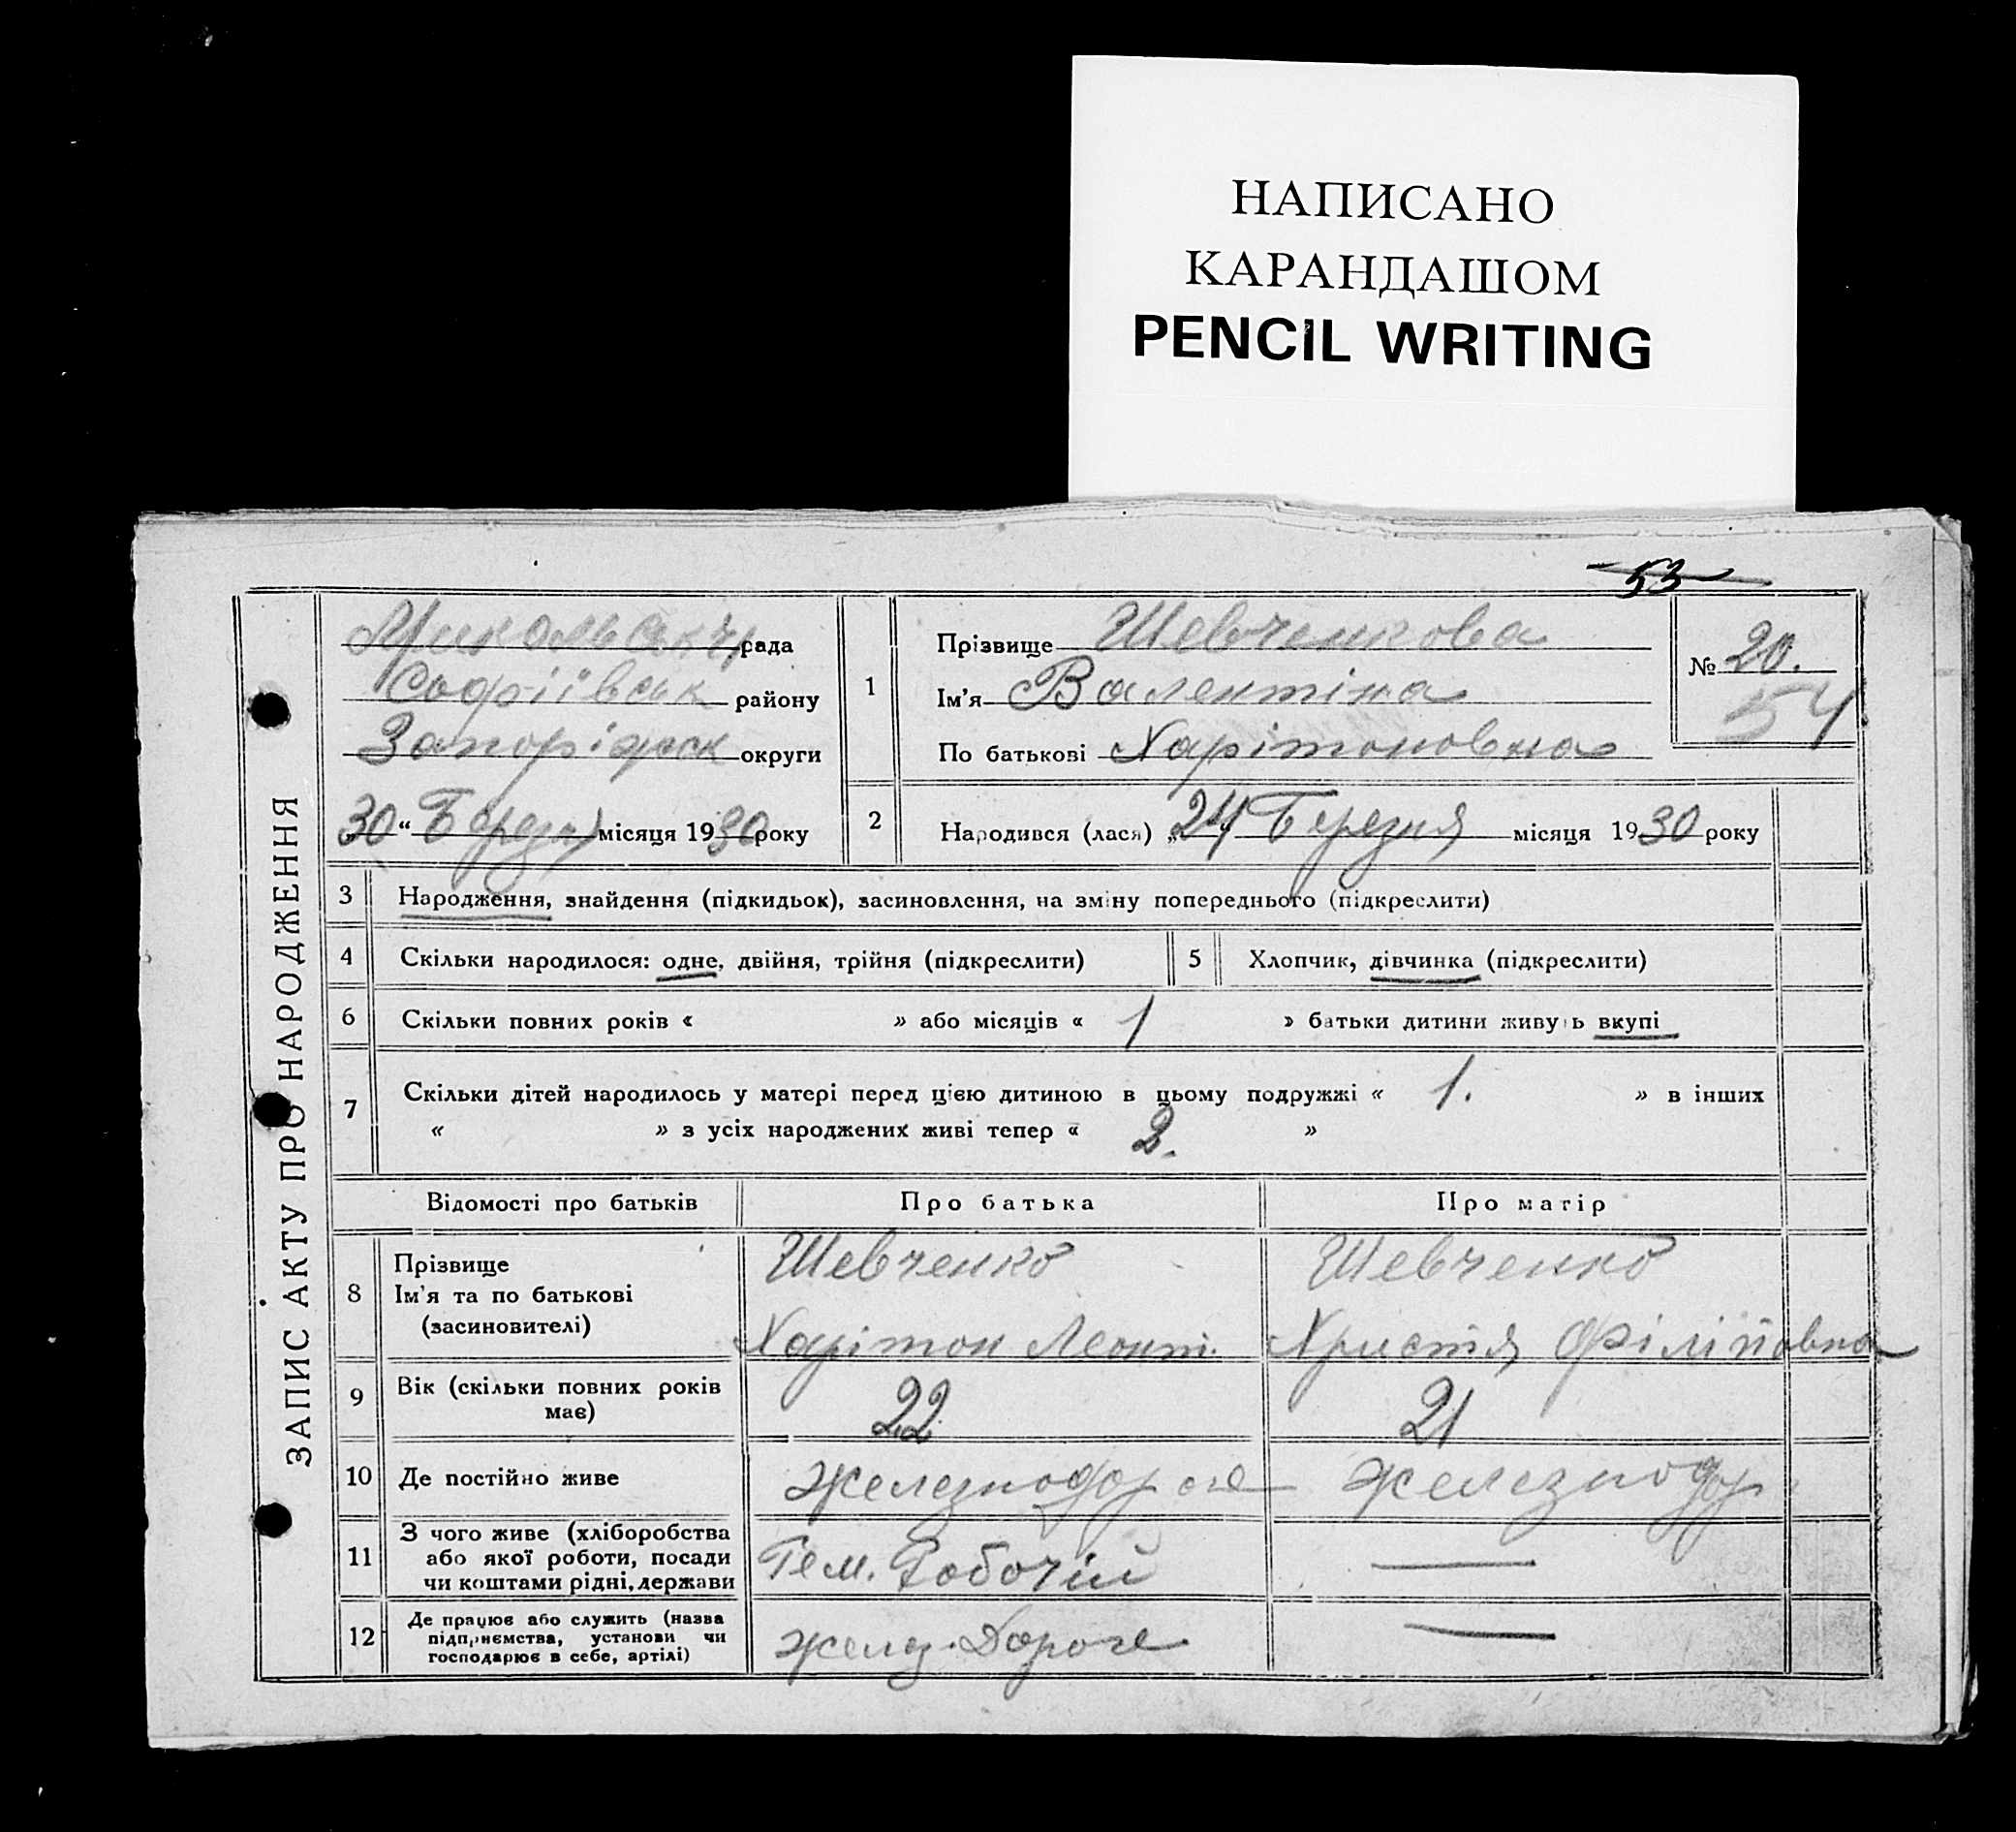 НАПИСАНО
КАРАНДАШОМ
PENCIL WRITING
53
ЗАПИС АКТУ ПРО НАРОДЖЕННЯ
рада
Софіївськ району
Запоріжск округи
30 “ Березня місяця 1930 року
1
Прізвище Шевченкова
Ім'я Валентіна
По батькові Харітоновна
№ 20.
54
2
Народився (лася) „24 Березня місяця 1930 року
3 Народження, знайдення (підкидьок), засиновлення, на зміну попереднього (підкреслити)
4 Скільки народилося: одне, двійня, трійня (підкреслити) 5 Хлопчик, дівчинка (підкреслити)
6 Скільки повних років « » або місяців « 1 » батьки дитини живуть вкупі
7 Скільки дітей народилось у матері перед цією дитиною в цьому подружжі « 1. » в інших
« » з усіх народжених живі тепер « 2. »
Відомості про батьків Про батька Про матір
8 Прізвище Шевченко Шевченко
Ім'я та по батькові
(засновителі) Харітон Леонт. Христя Філіповна
9 Вік (скільки повних років
має) 22 21
10 Де постійно живе Железнодор
11 З чого живе (хліборобства
або якої роботи, посади
чи коштами рідні, держави Робочій —
12 Де працює або служить (назва
підприємства, установи чи
господарює в себе, артілі) желез. Дороге —